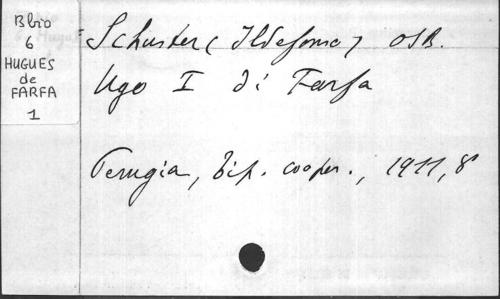 Bbio
6
HUGUES
de
FARFA
1
Schuster (Ildefonso) OSB.
Ugo I di Farfa
Perugia, tip. cooper., 1911, 8°